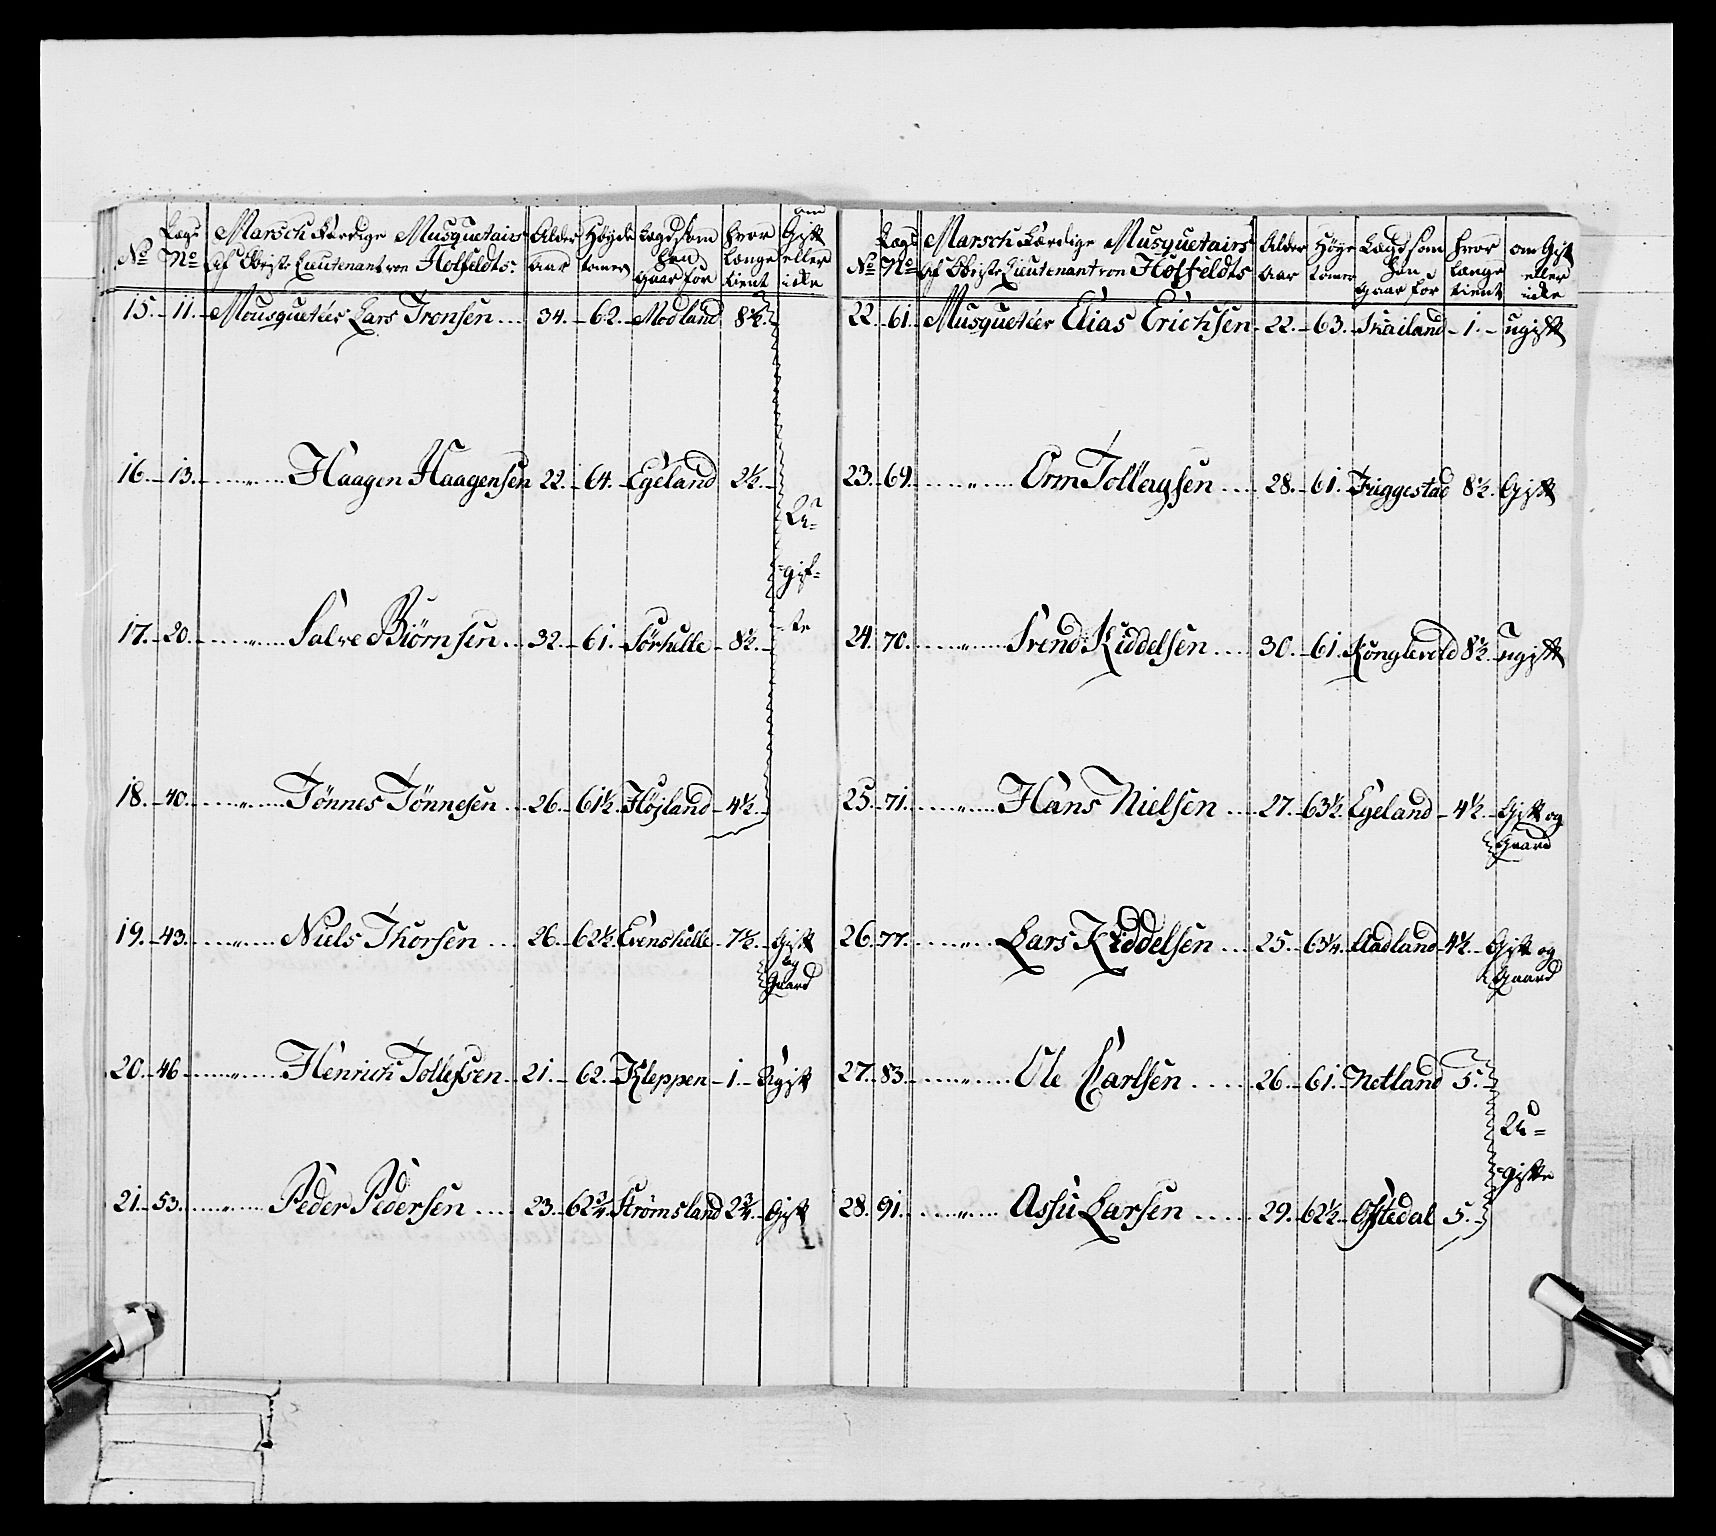 No Lægs No Marsch Færdige Musquetairs af Obriste Lieutenant von Holfeldts: Alder Aar Høyde tomer Lægd som han gaar for hvor længe tient om Gift eller icke
15. 11. Mousquetéer Lars Tronsen 34. 62. Modland 8½.
16. 13. " Haagen Haagensen 22. 64. Egeland 2½.
17. 20. " Salve Biörnsen 32. 61. Sørhulle 8½.
18. 40. " Tönnes Tönnesen 26. 61½. Höjland 4½.
U=
=gif=
=te
19. 43. " Niels Thorsen 26. 62½. Evenshelle 7½. Gift
og
Gaard
20. 46. " Henrich Tollefsen 21. 62. Kleppen 1. Ugift
21. 53. " Peder Pedersen 23. 62¾. Strömsland 2¾. Gift
No Lægs No Marsch Færdige Musquetairs af Obriste Lieutenant von Holfeldts Alder Aar Höye tomer Lægd som han gaar for hvor længe tient om Gift eller icke
22. 61. Musquetéer Elias Erichsen 22. 63. Skailand 1. ugift
23. 69. " Orm Tollaysen 28. 61. Friggestad 8½. Gift
24. 70. " Svend Kiddelsen 30. 61. Konglevold 8½. ugift
25. 71. " Hans Nielsen 27. 63½. Egeland 4½. Gift og
Gaard
26. 77. " Lars Kiddelsen 25. 63¼. Aadland 4½. Gift og
Gaard
27. 83. " Ole Carlsen 26. 61. Netland 5.
U=
=gifte
28. 91. " Assu Larsen 29. 62½. Ofstedal 5.